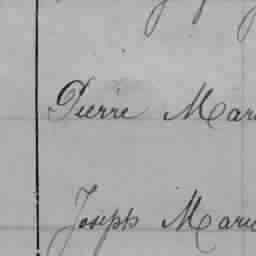 Pierre Mar
Joseph Marie